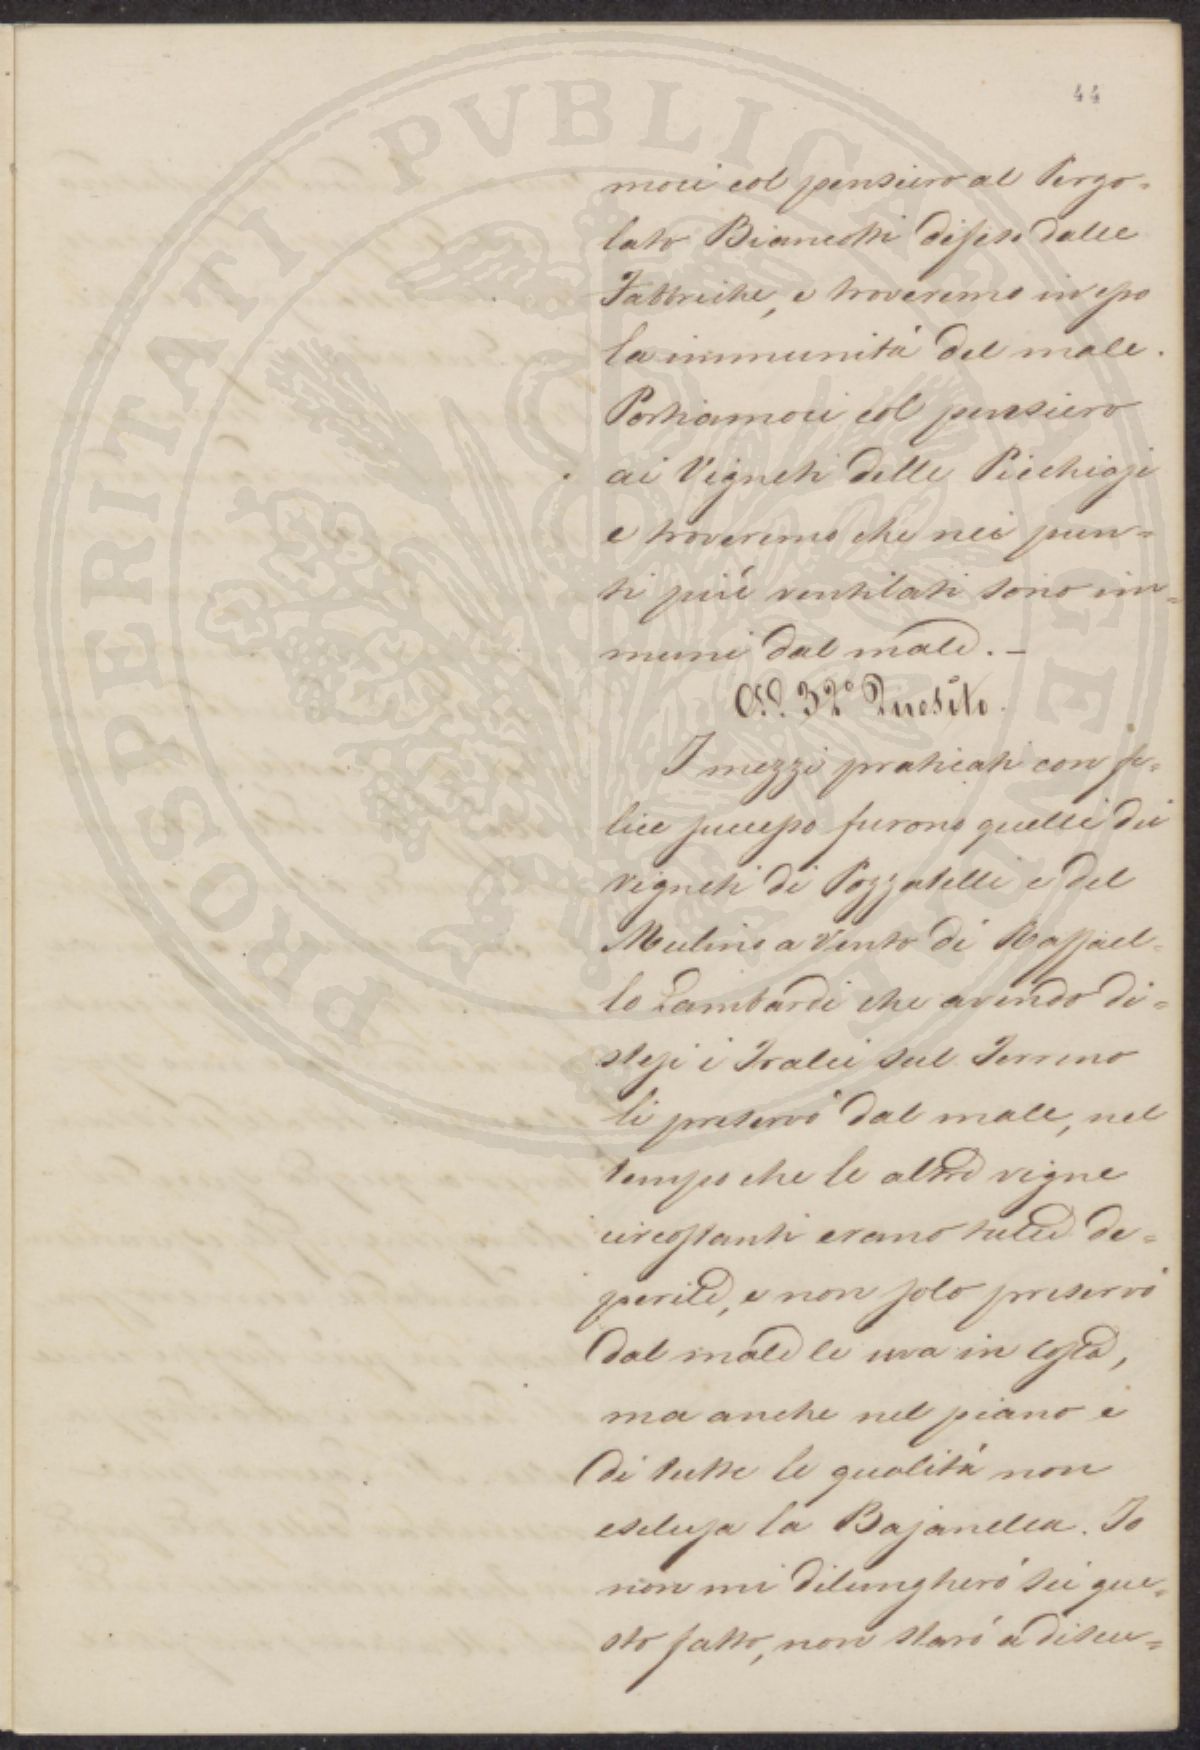 44
PROSPERITATI PVBLICAE AVGENDAE
moci col pensiero al Pergo=
lato Biancotti difeso dalle
Fabbriche, e troveremo in esso
la immunitá del male.
Portiamoci col pensiero
ai Vigneti delle Picchiaje
e troveremo che nei pun=
ti piú ventilati sono im=
muni dal male. –
Al 32° Quesito.
I mezzi praticati con fe=
lice successo furono quelli dei
vigneti di Pozzatelli e del
Mulino a Vento di Raffael=
lo Lambardi che avendo di=
stesi i Tralci sul Terreno
li preservó dal male, nel
tempo che le altre vigne
circostanti erano tutte de=
perite, e non solo preservó
dal male le uva in costa,
ma anche nel piano e
di tutte le qualitá non
esclusa la Bajanella. Io
non mi dilungheró su que=
sto fatto, non staró a discu=